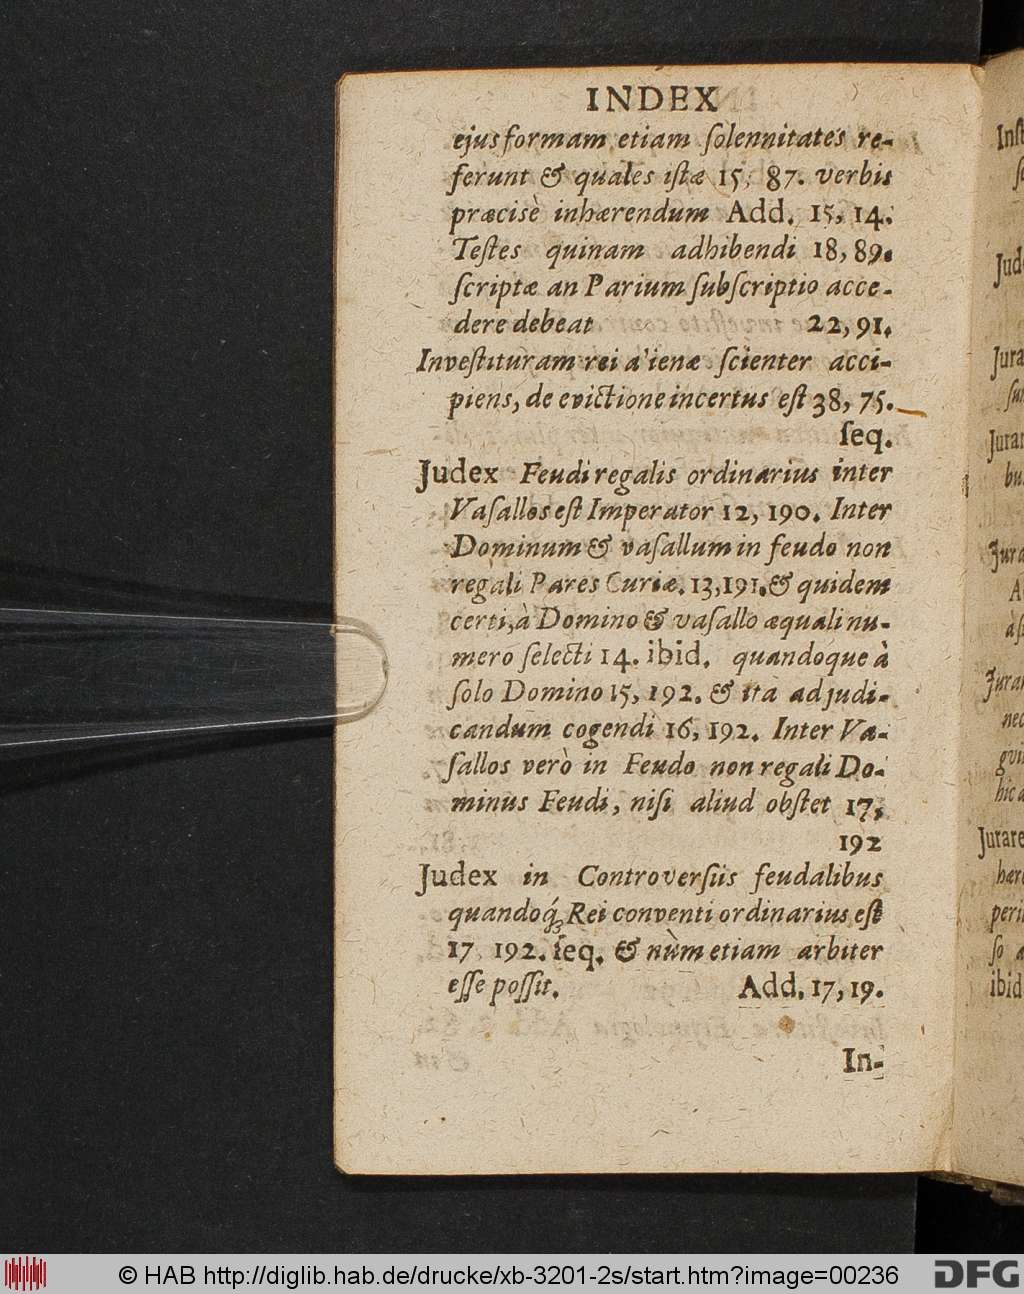 INDEX
ejus formam etiam ſolennitates re-
ferunt & quales iſtæ 15, 87. verbis
præcisè inhærendum Add. 15, 14.
Teſtes quinam adhibendi 18, 89.
ſcriptæ an Parium ſubſcriptio acce-
dere debeat 22, 91.
Inveſtituram rei a'ienæ ſcienter acci-
piens, de evictione incertus eſt 38, 75.
ſeq.
Judex Feudi regalis ordinarius inter
Vaſallos eſt Imperator 12, 190. Inter
Dominum & vaſallum in feudo non
regali Pares Curiæ. 13, 191. & quidem
certi, à Domino & vaſallo æquali nu-
mero ſelecti 14. ibid. quandoque à
ſolo Domino 15, 192. & ita adjudi-
candum cogendi 16, 192. Inter Va-
ſallos verò in Feudo non regali Do-
minus Feudi, niſi aliud obſtet 17,
192
Judex in Controverſiis feudalibus
quandoq́; Rei conventi ordinarius eſt
17 192. ſeq. & nùm etiam arbiter
eſſe poſſit. Add. 17, 19.
In-
Jud
Jura
Jurar
bu
Jura
A
Jurar
nec
hic a
Jurare
hære
peri
ſo a
ibid
© HAB http://diglib.hab.de/drucke/xb-3201-2s/start.htm?image=00236
DFG